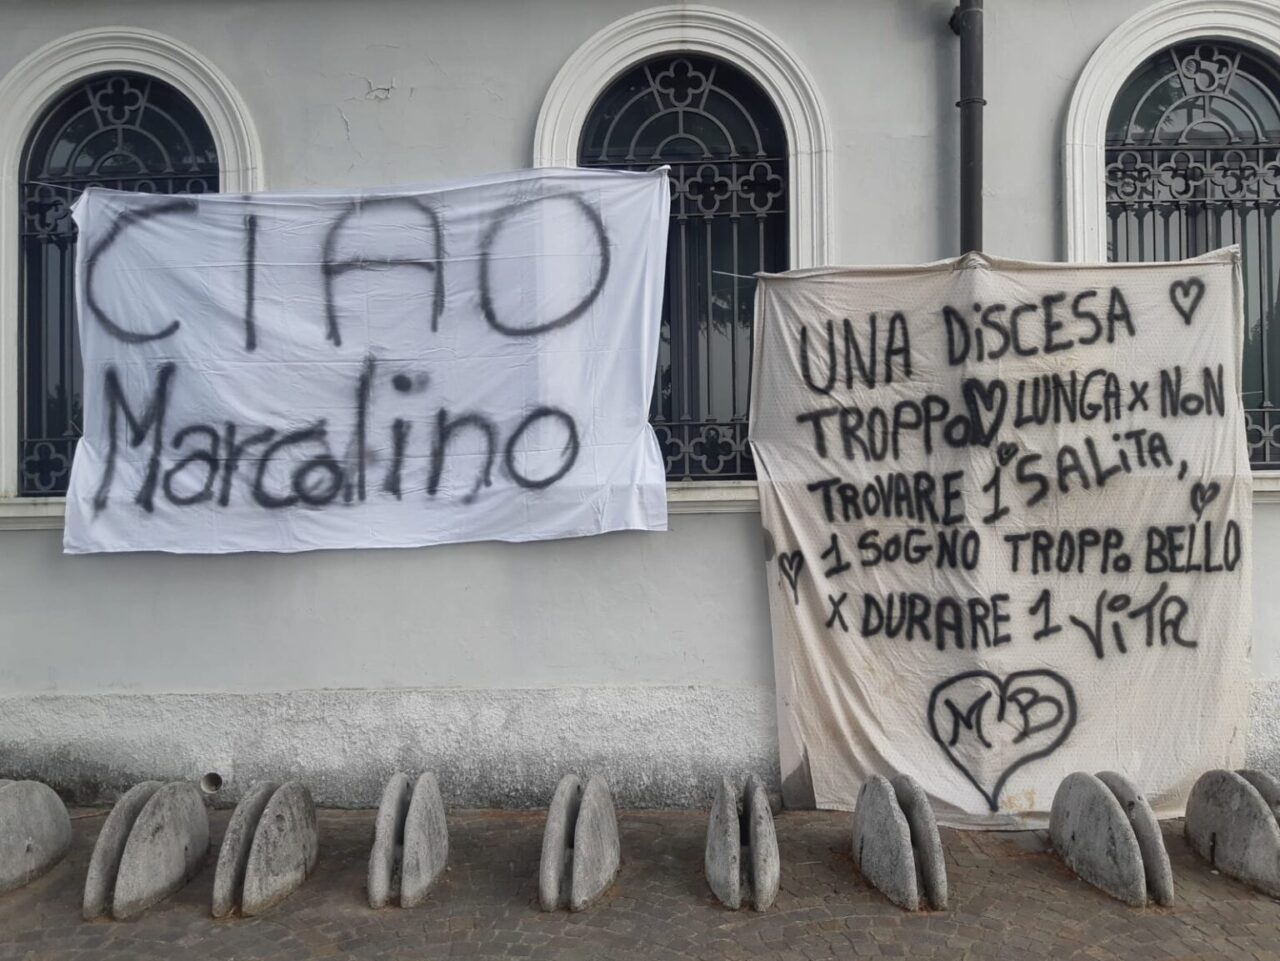 CIAO
Marcolino
UNA DiSCESA
TROPPO LUNGA x NON
TROVARE 1 SALiTA,
1 SOGNO TROPPO BELLO
X DURARE 1 ViTA
MB